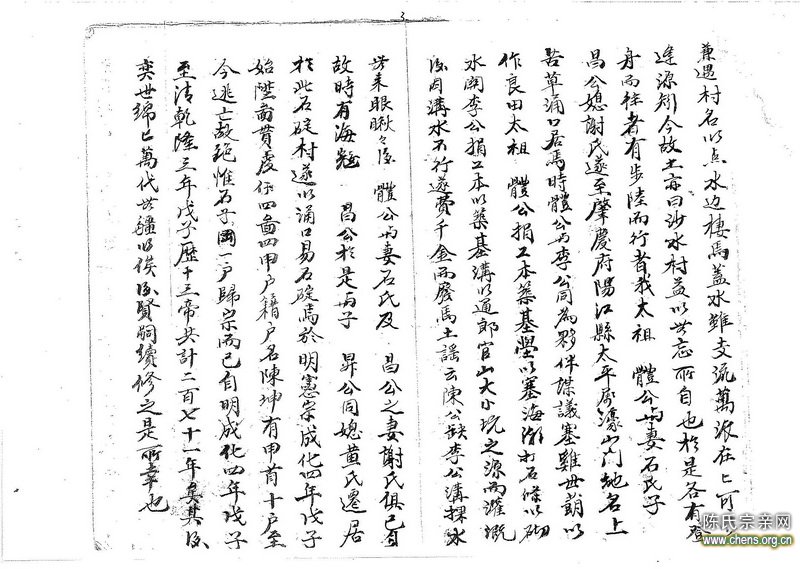 3
兼遇村名以点水边棲馬蓋水雖支流萬派在在可
逢源矧今故土亦曰沙水村益以世忘所自也於是各有登
舟而往者有步陸而行者我太祖 體公与妻石氏子
昌公媳謝氏遂至肇慶府陽江縣太平㕔濠山門地名上
苔草涌口居焉時體公与李公同為夥伴謀議塞雞母萠以
作良田太祖 體公捐工本築基壆以塞海潮打石條以砌
水閘李公捐工本以築基溝以通郎官山大小坑之源而灌溉
後因溝水不行遂費千金而廢焉土謠云陳公缺李公溝探水
苦来眼瞅々後 體公与妻石氏及 昌公之妻謝氏俱已自
故時有海寇 昌公於是与子 昇公同媳黄氏遷居
於此石碇村遂以涌口易石碇焉於明憲宗成化四年戊子
始陞啚貫慶伍四啚四甲户籍户名陳坤有甲首十户至
今逃亡故絶惟石子岡一户歸宗而已自明成化四年戊子
至清乾隆三年戊子歷十三帝共計二百七十一年矣其後
奕世綿匕萬代世疆以俟後賢嗣續修之是所幸也
陈氏宗亲网
www.chens.org.cn